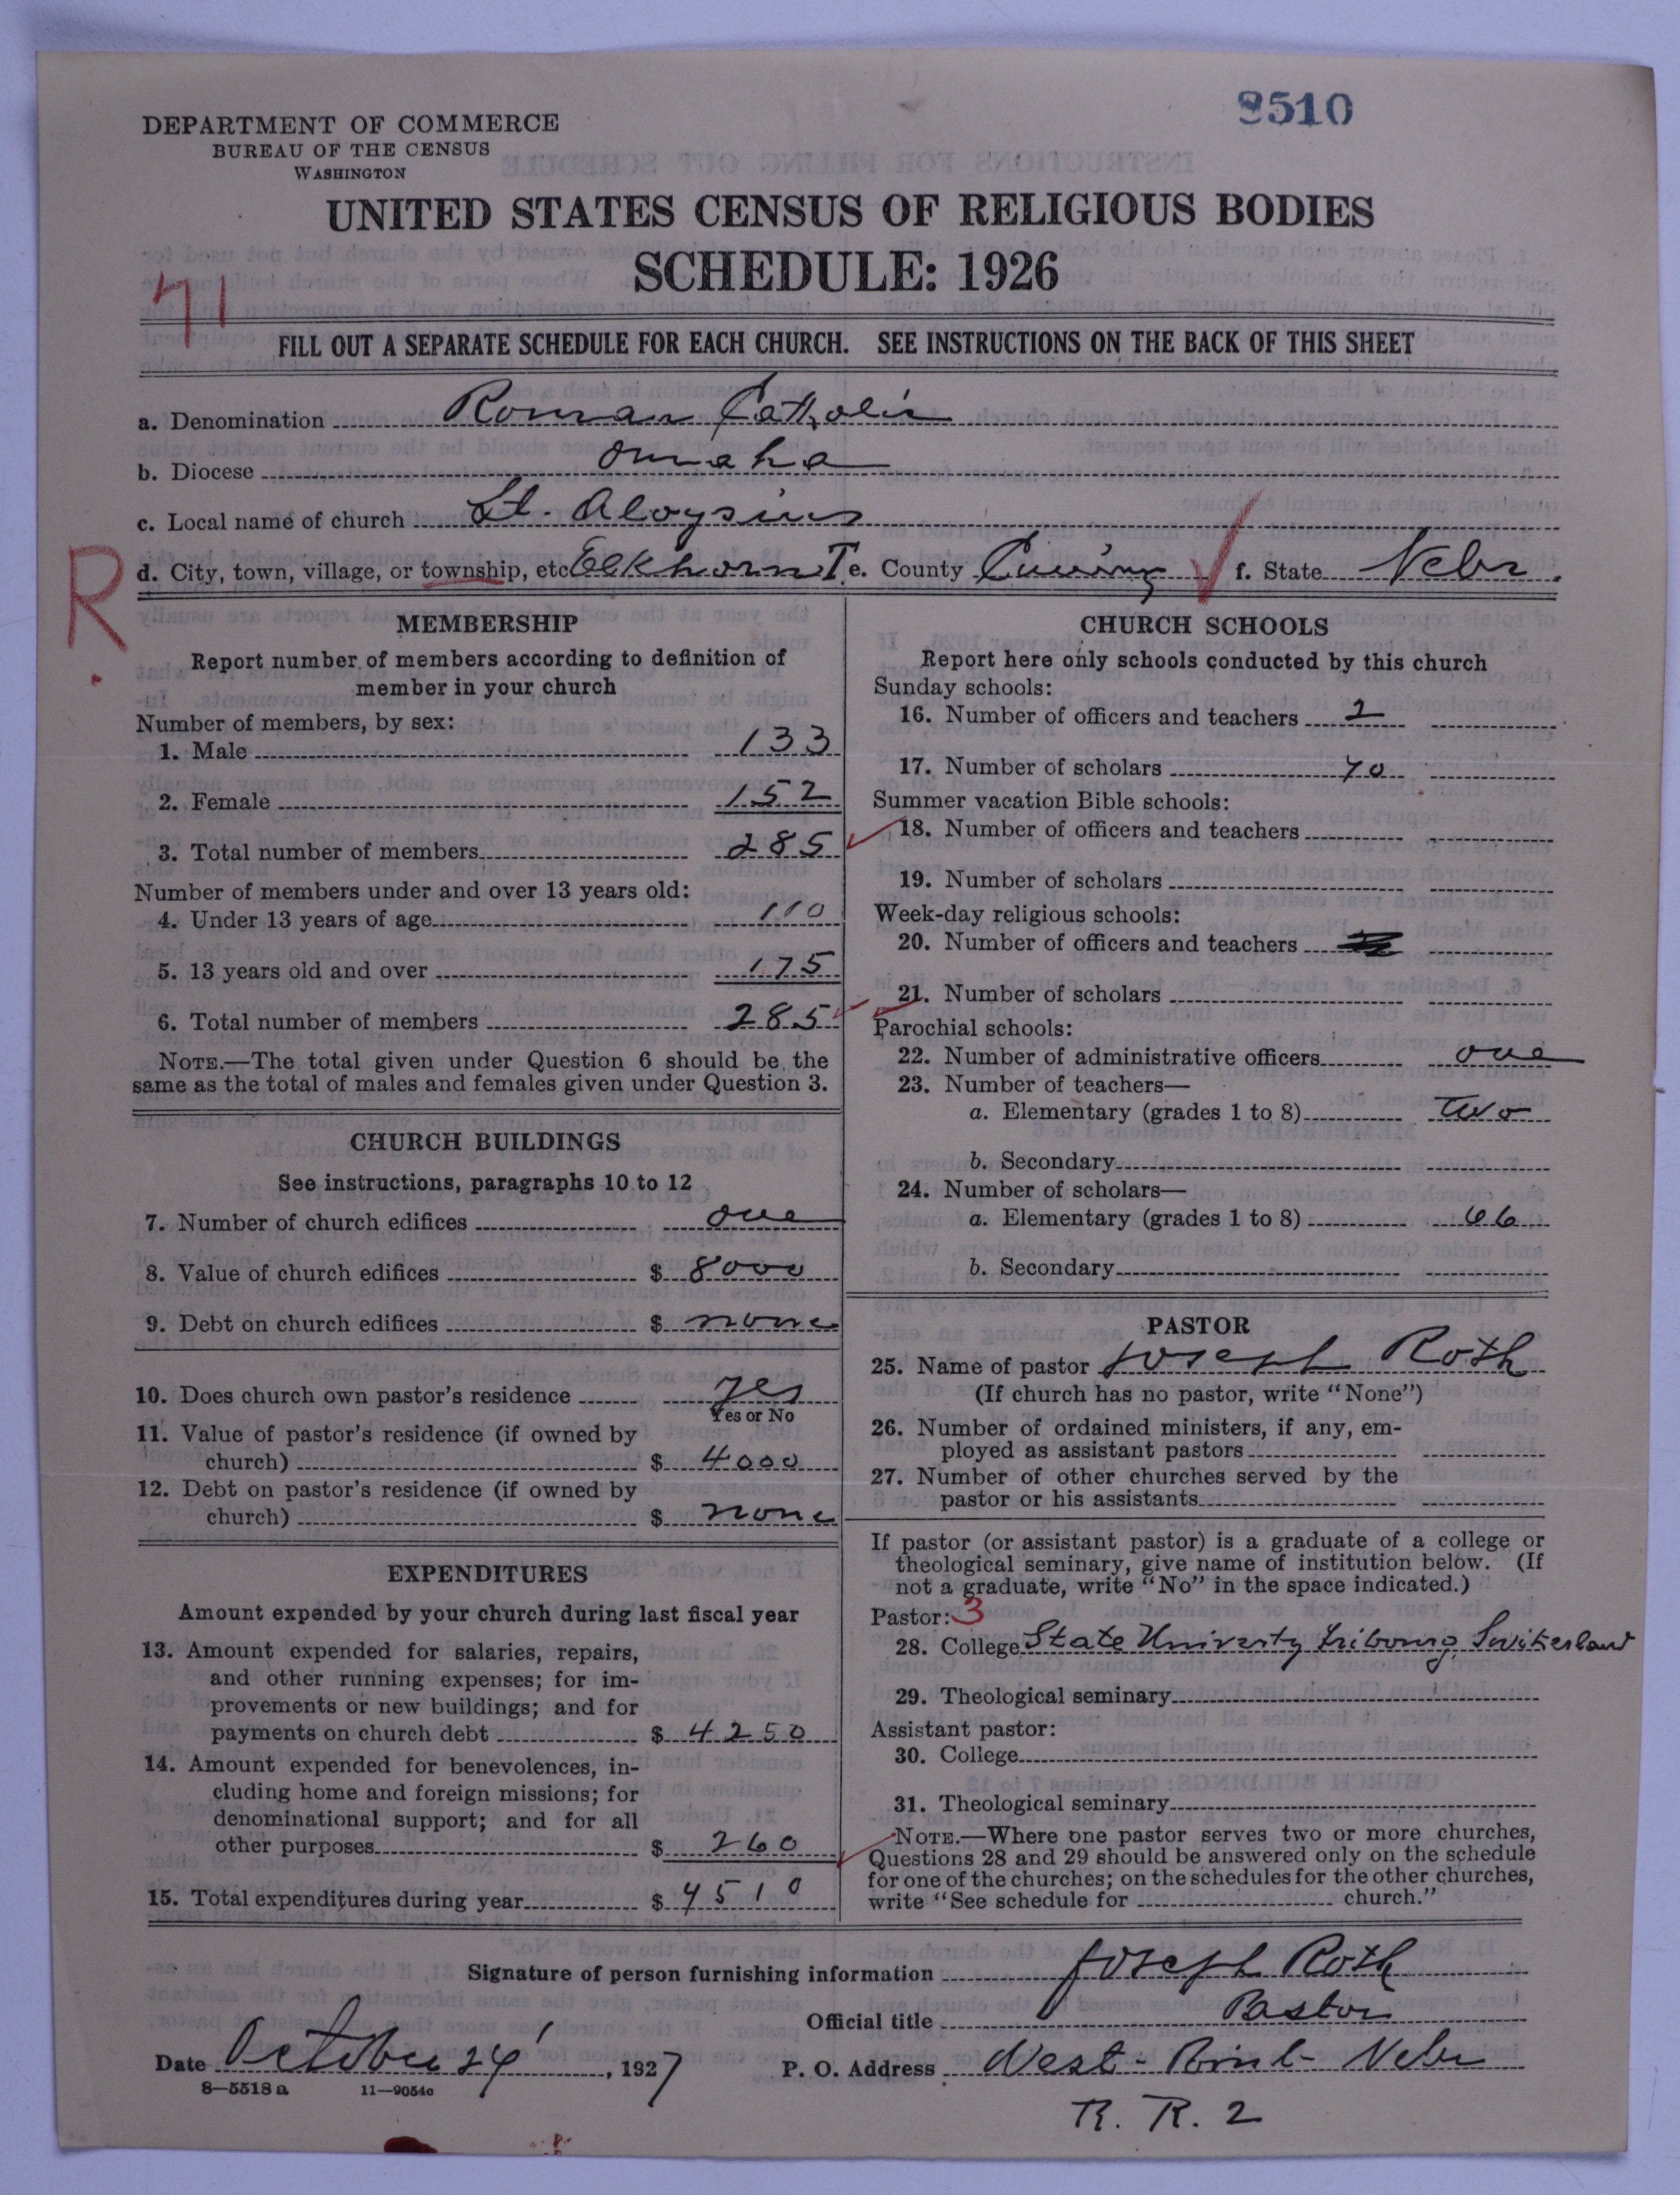 8510
DEPARTMENT OF COMMERCE
BUREAU OF THE CENSUS
WASHINGTON
UNITED STATES CENSUS OF RELIGIOUS BODIES
SCHEDULE: 1926
71
FILL OUT A SEPARATE SCHEDULE FOR EACH CHURCH. SEE INSTRUCTIONS ON THE BACK OF THIS SHEET
a. Denomination Roman Catholic
b. Diocese Omaha
c. Local name of church St. Aloysius
R.
d. City, town, village, or township, etc. Elkhorn T e. County Cuming f. State Nebr.
MEMBERSHIP
Report number of members according to definition of
member in your church
Number of members, by sex:
1. Male 133
2. Female 152
3. Total number of members 285
Number of members under and over 13 years old:
4. Under 13 years of age 110
5. 13 years old and over 175
6. Total number of members 285
NOTE.—The total given under Question 6 should be the
same as the total of males and females given under Question 3.
CHURCH BUILDINGS
See instructions, paragraphs 10 to 12
7. Number of church edifices one
8. Value of church edifices $ 8000
9. Debt on church edifices $ none
10. Does church own pastor's residence yes
Yes or No
11. Value of pastor's residence (if owned by
church) $ 4000
12. Debt on pastor's residence (if owned by
church) $ none
EXPENDITURES
Amount expended by your church during last fiscal year
13. Amount expended for salaries, repairs,
and other running expenses; for im-
provements or new buildings; and for
payments on church debt $ 4250
14. Amount expended for benevolences, in-
cluding home and foreign missions; for
denominational support; and for all
other purposes $ 260
15. Total expenditures during year $ 4510
CHURCH SCHOOLS
Report here only schools conducted by this church
Sunday schools:
16. Number of officers and teachers 2
17. Number of scholars 70
Summer vacation Bible schools:
18. Number of officers and teachers
19. Number of scholars
Week-day religious schools:
20. Number of officers and teachers
21. Number of scholars
Parochial schools:
22. Number of administrative officers one
23. Number of teachers—
a. Elementary (grades 1 to 8) two
b. Secondary
24. Number of scholars—
a. Elementary (grades 1 to 8) 66
b. Secondary
PASTOR
25. Name of pastor Joseph Roth
(If church has no pastor, write "None")
26. Number of ordained ministers, if any, em-
ployed as assistant pastors
27. Number of other churches served by the
pastor or his assistants
If pastor (or assistant pastor) is a graduate of a college or
theological seminary, give name of institution below. (If
not a graduate, write "No" in the space indicated.)
Pastor: 3
28. College State Univerity Fribourg, Switzerland
29. Theological seminary
Assistant pastor:
30. College
31. Theological seminary
NOTE.—Where one pastor serves two or more churches,
Questions 28 and 29 should be answered only on the schedule
for one of the churches; on the schedules for the other churches,
write "See schedule for church."
Signature of person furnishing information Joseph Roth
Official title Pastor
Date October 24, 1927 P. O. Address West-Point Nebr
8—5518a 11—9054c
R. R. 2